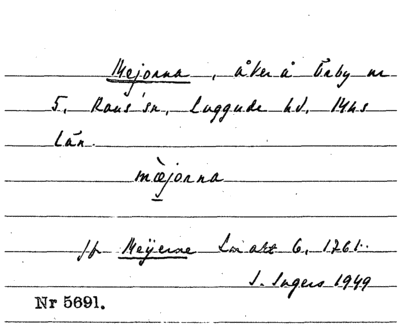 Mejorna, åker å Örby nr
5, Raus sn, Luggude hd, Mhs
län.
mæ̀jorna
jfr Meÿerne Lm akt 6, 1761.
I. Ingers 1949
Nr 5691.